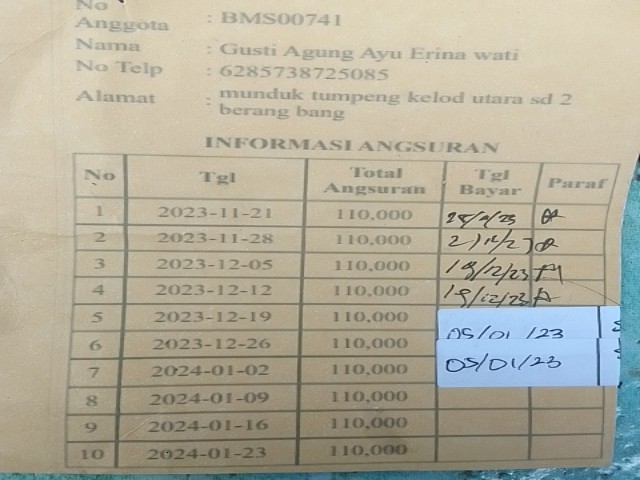 No
Anggota : BMS00741
Nama : Gusti Agung Ayu Erina wati
No Telp : 6285738725085
Alamat : munduk tumpeng kelod utara sd 2
berang bang
INFORMASI ANGSURAN
No Tgl Total Angsuran Tgl Bayar Paraf
1 2023-11-21 110,000
2 2023-11-28 110,000
3 2023-12-05 110,000 19/12/23
4 2023-12-12 110,000 19/12/23
5 2023-12-19 110,000 05/01/23
6 2023-12-26 110,000 05/01/23
7 2024-01-02 110,000
8 2024-01-09 110,000
9 2024-01-16 110,000
10 2024-01-23 110,000